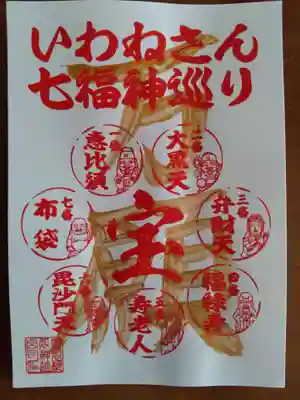 いわねさん
七福神巡り
一番
恵比須
二番
大黒天
三番
弁財天
四番
福禄寿
五番
寿老人
毘沙門天
七番
布袋
宝